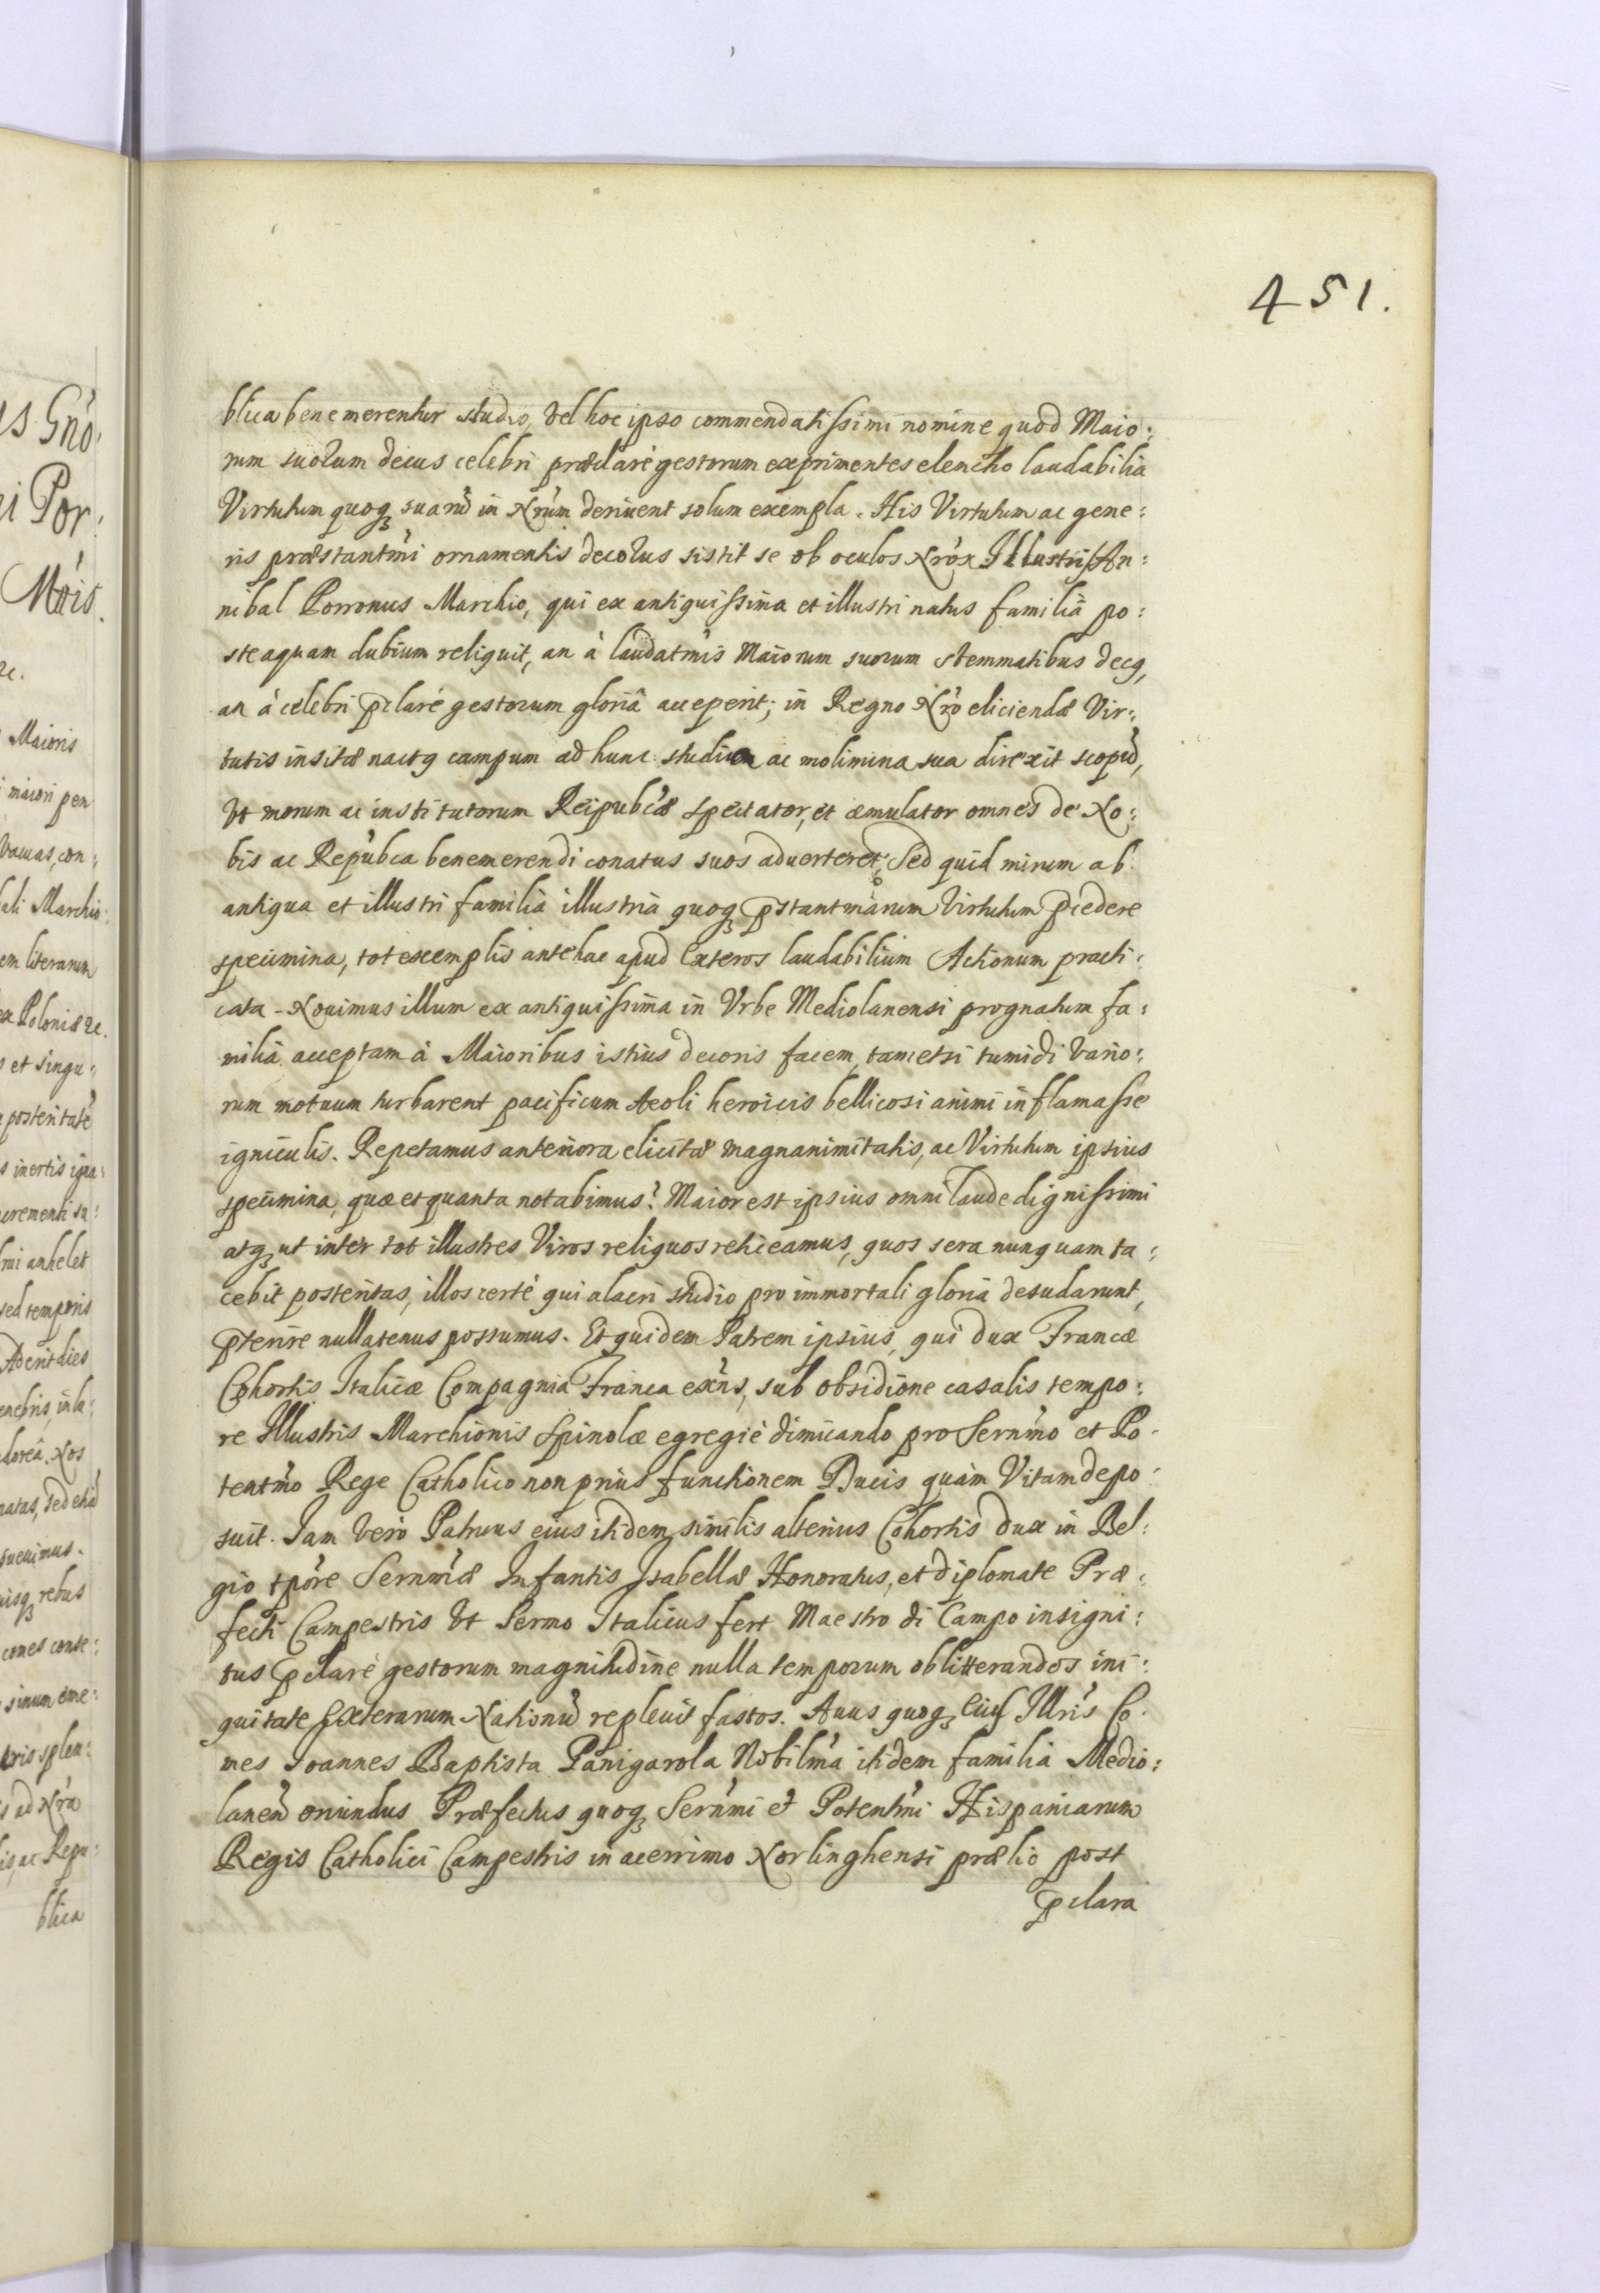 451.
blica benemerentur studio, vel hoc ipso commendatissimi nomine quod Maio:
rum suorum decus celebri præclarè gestorum exprimentes elencho laudabilia
Virtutum quoq suarũ in Nrũm deriuent solum exempla. His Virtutum ac gene:
ris præstantmi ornamentis decorus sistit se ob oculos Nrox Illustris An:
nibal Porronus Marchio, qui ex antiquissima et illustri natus familiâ po:
steaquam dubium reliquit, an à laudatmis Maiorum suorum stemmatibus decq,
an à celebri pclarè gestorum gloriâ acceperit; in Regno Nro eliciendæ Vir:
tutis insitæ nactq campum ad hunc studia ac molimina sua direxit scopũ,
Vt morum ac institutorum Reipubcæ spectator, et æmulator omnes de No:
bis ac Repubca benemerendi conatus suos aduerteret, Sed quid mirum ab
antiqua et illustri familia illustria quoq pstantmarum Virtutum pcedere
specimina, tot exemplis antehac apud Exteros laudabilium Actionum practi:
cata. Nouimus illum ex antiquissima in Vrbe Mediolanensi prognatum fa:
miliâ acceptam à Maioribus istius decoris facem, tametsi tumidi vario:
rum motuum turbarent pacificum Aeoli heroicis bellicosi animi inflamasse
igniculis. Repetamus anteriora elicitæ magnanimitatis, ac Virtutum ipsius
specimina, quæ et quanta notabimus? Maior est ipsius omni laude dignissimi
atq ut inter tot illustres Viros reliquos reticeamus, quos sera nunquam ta:
cebit posteritas, illos certè qui alacri studio pro immortali gloriâ desudarunt,
pterire nullatenus possumus. Et quidem Patrem ipsius, qui dux Francæ
Cohortis Italicæ Compagnia Franca exñs, sub obsidione casalis tempo:
re Illustris Marchionis Spinolæ egregiè dimicando pro Sernmo et Po:
tentmo Rege Catholico non prius functionem Ducis quàm Vitam depo:
suit. Iam verò Patruus eius itidem similis alterius Cohortis dux in Bel:
gio tpore Sernmæ Infantis Isabellæ Honoratus, et diplomate Præ:
fecti Campestris Vt Sermo Italicus fert Maestro di Campo insigni:
tus pclarè gestorum magnitudine nulla temporum oblitterandos ini:
quitate Exterarum Nationũ repleuit fastos. Auus quoq Eius Illris Co:
mes Ioannes Baptista Panigarola Nobilma itidem familia Medio:
lanen̄ oriundus Præfectus quoq Sernmi et Potentmi Hispaniarum
Regis Catholici Campestris in acerrimo Norlinghensi prælio post
pclara